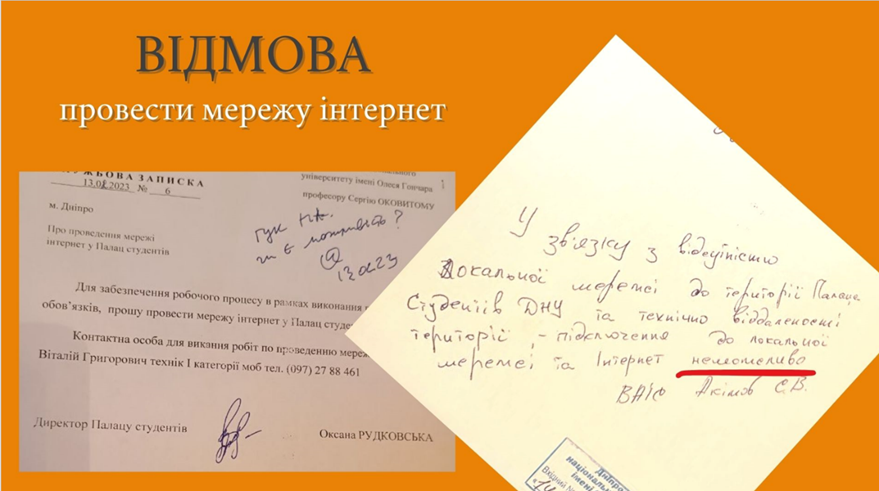 ВІДМОВА
провести мережу інтернет
СЛУЖБОВА ЗАПИСКА
13.02.2023 № 6
університету імені Олеся Гончара
професору Сергію ОКОВИТОМУ
м. Дніпро
Про проведення мережі
інтернет у Палац студентів
Гук НА.
чи є можливість?
13.02.23
Для забезпечення робочого процесу в рамках виконання
обов’язків, прошу провести мережу інтернет у Палац
Контактна особа для викання робіт по проведенню
Віталій Григорович технік І категорії моб тел. (097) 27 88 461
Директор Палацу студентів
Оксана РУДКОВСЬКА
У зв'язку з відсутністю
Локальної мережі до території Палаца
Студентів ДНУ та технічно віддаленості
території, - підключення до локальної
мережі та Інтернет неможливо
Акімов С.В.
національн
імені
Вхідний №